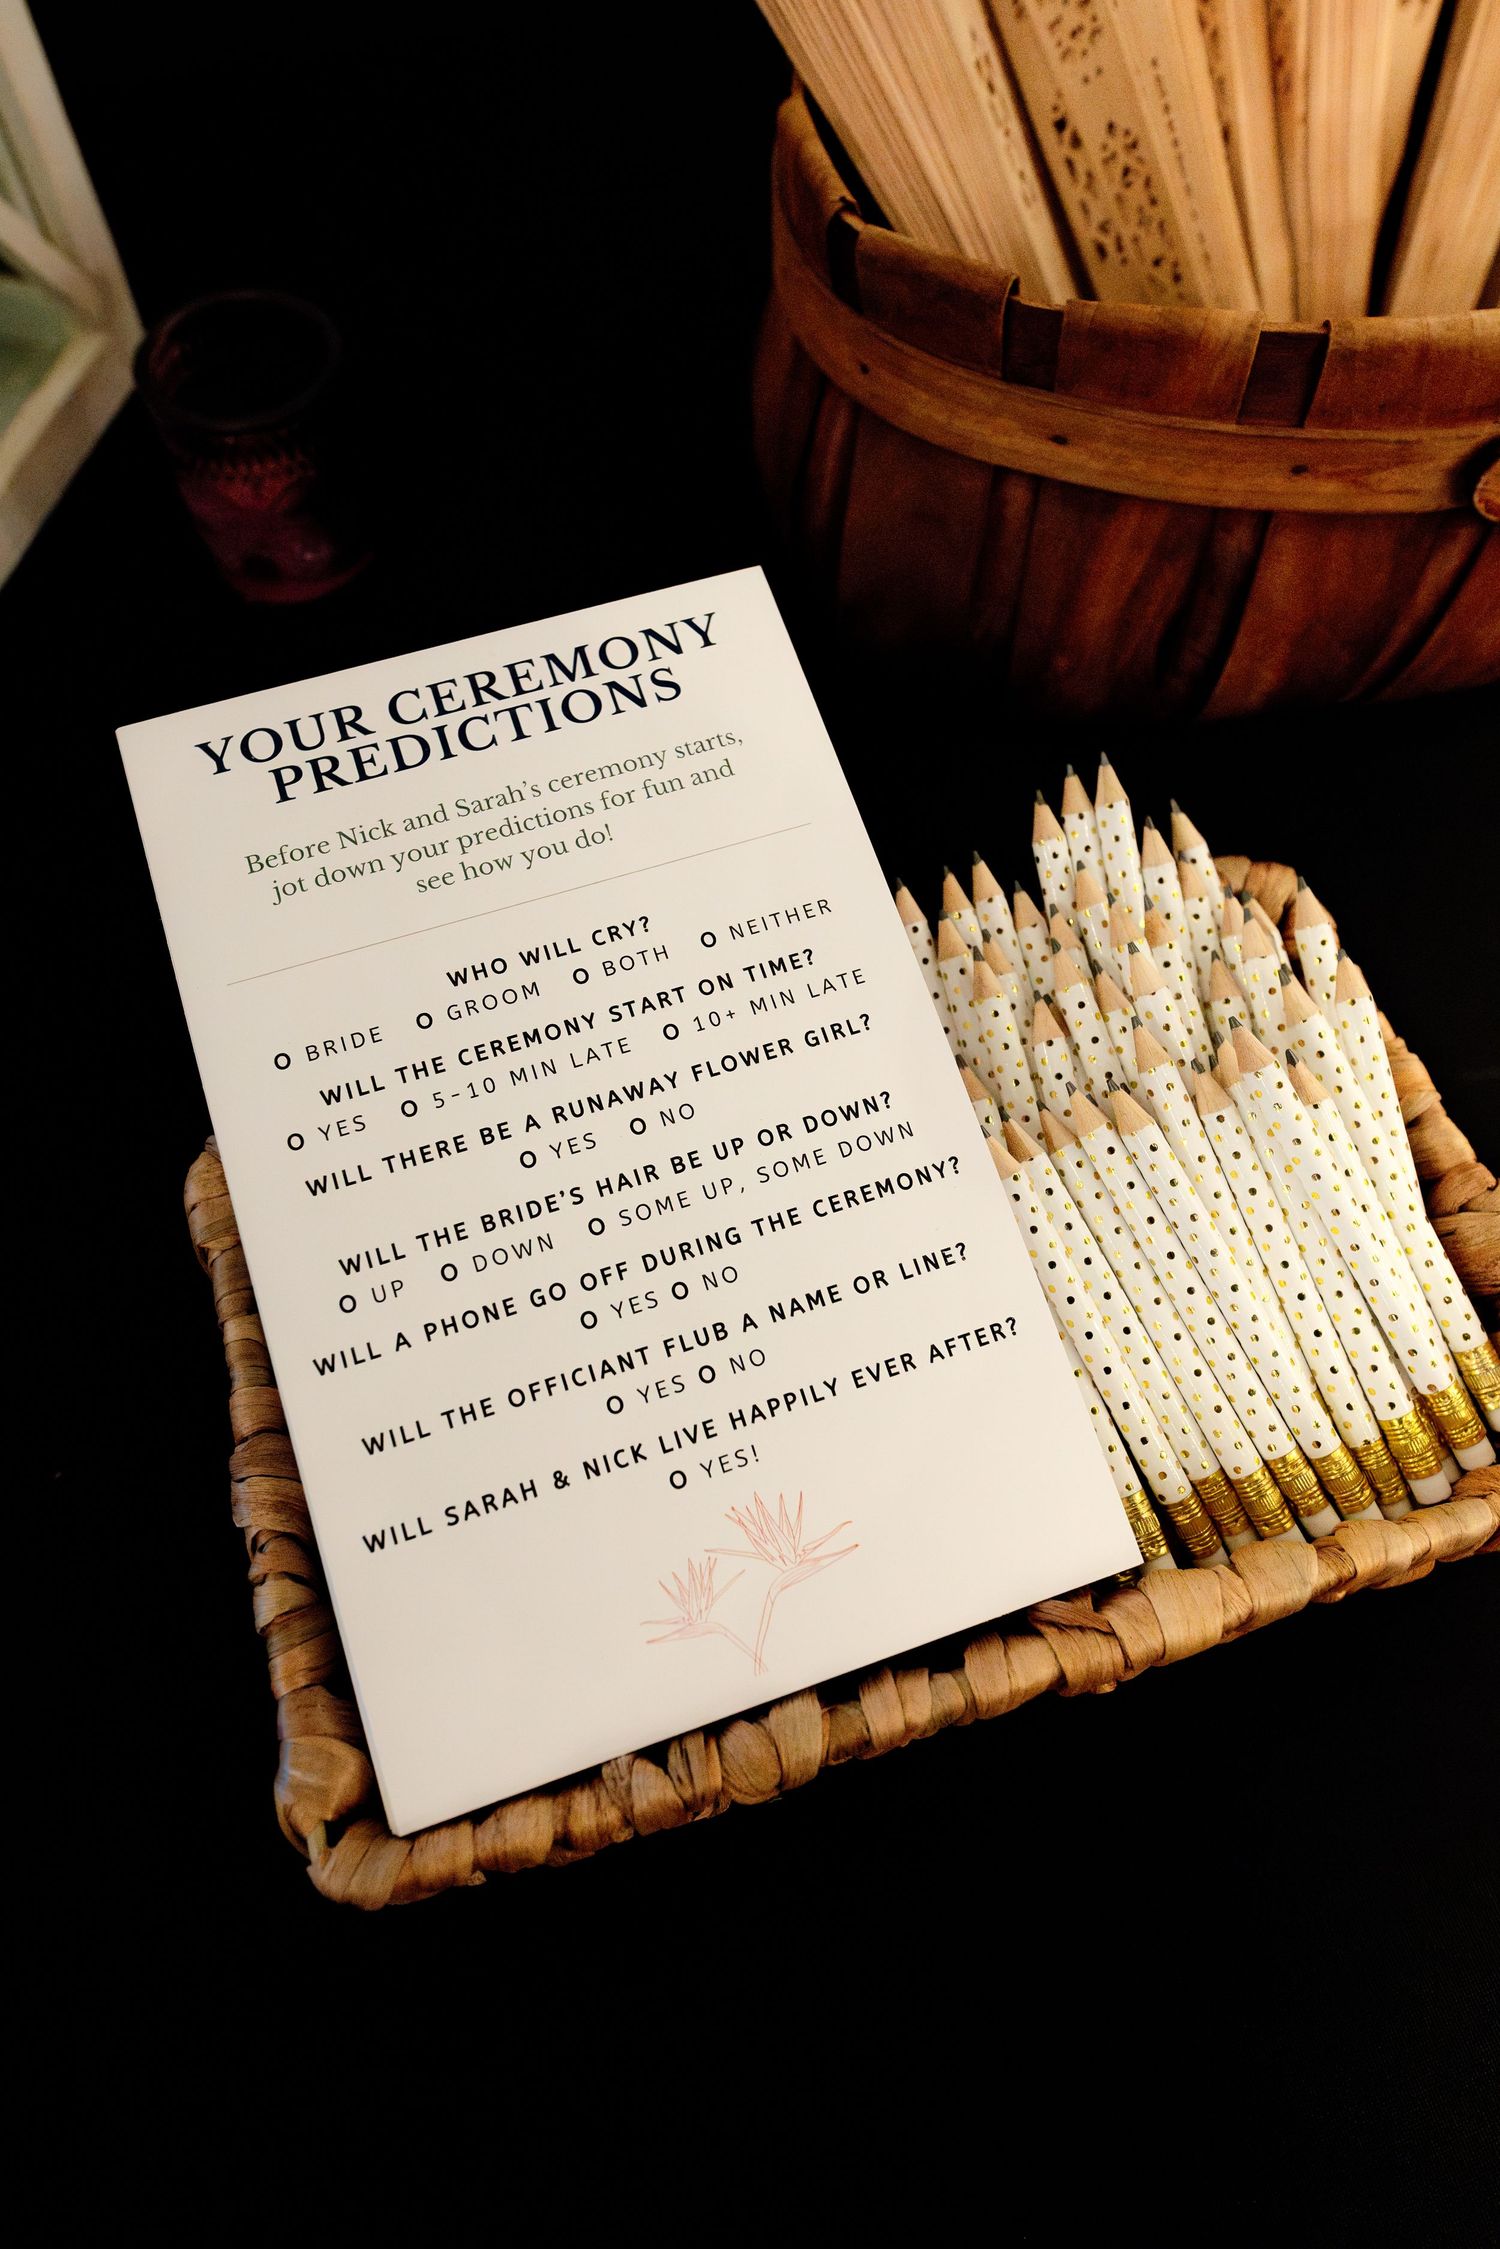 YOUR CEREMONY
PREDICTIONS
Before Nick and Sarah's ceremony starts,
jot down your predictions for fun and
see how you do!
WHO WILL CRY?
O BRIDE O GROOM O BOTH O NEITHER
WILL THE CEREMONY START ON TIME?
O YES O 5-10 MIN LATE O 10+ MIN LATE
WILL THERE BE A RUNAWAY FLOWER GIRL?
O YES O NO
WILL THE BRIDE'S HAIR BE UP OR DOWN?
O UP O DOWN O SOME UP, SOME DOWN
WILL A PHONE GO OFF DURING THE CEREMONY?
O YES O NO
WILL THE OFFICIANT FLUB A NAME OR LINE?
O YES O NO
WILL SARAH & NICK LIVE HAPPILY EVER AFTER?
O YES!